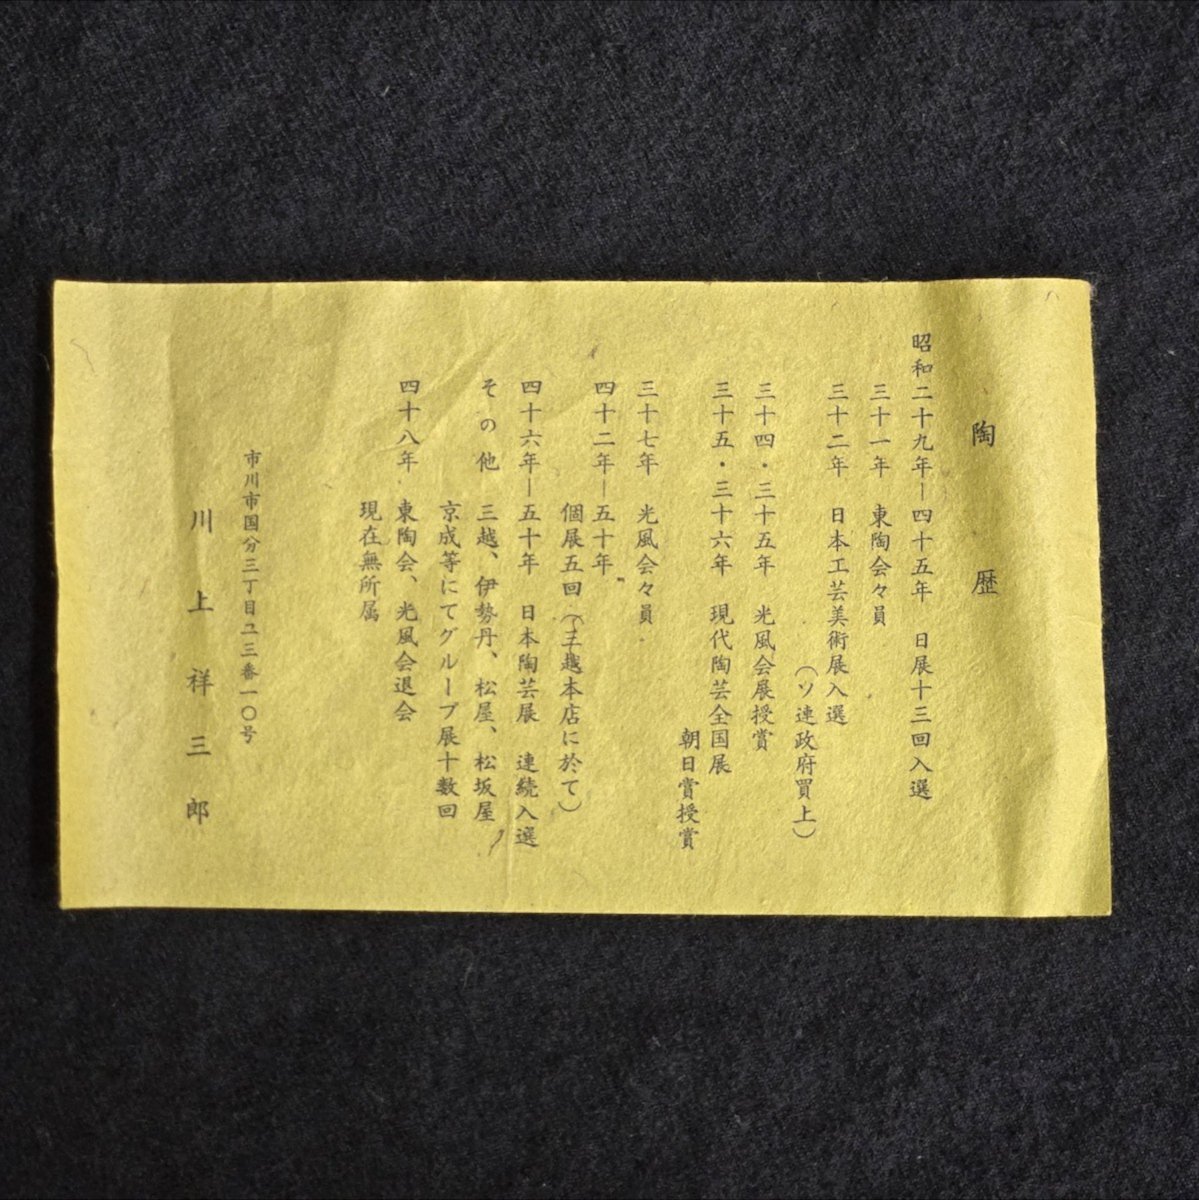 陶歴
昭和二十九年―四十五年 日展十三回入選
三十一年 東陶会々員
三十二年 日本工芸美術展入選
(ソ連政府買上)
三十四・三十五年 光風会展授賞
三十五・三十六年 現代陶芸全国展
朝日賞授賞
三十七年 光風会々員
四十二年―五十年
個展五回(三越本店に於て)
四十六年―五十年 日本陶芸展 連続入選
その他 三越、伊勢丹、松屋、松坂屋
京成等にてグループ展十数回
四十八年 東陶会、光風会退会
現在無所属
市川市国分三丁目ユ三番一〇号
川上祥三郎